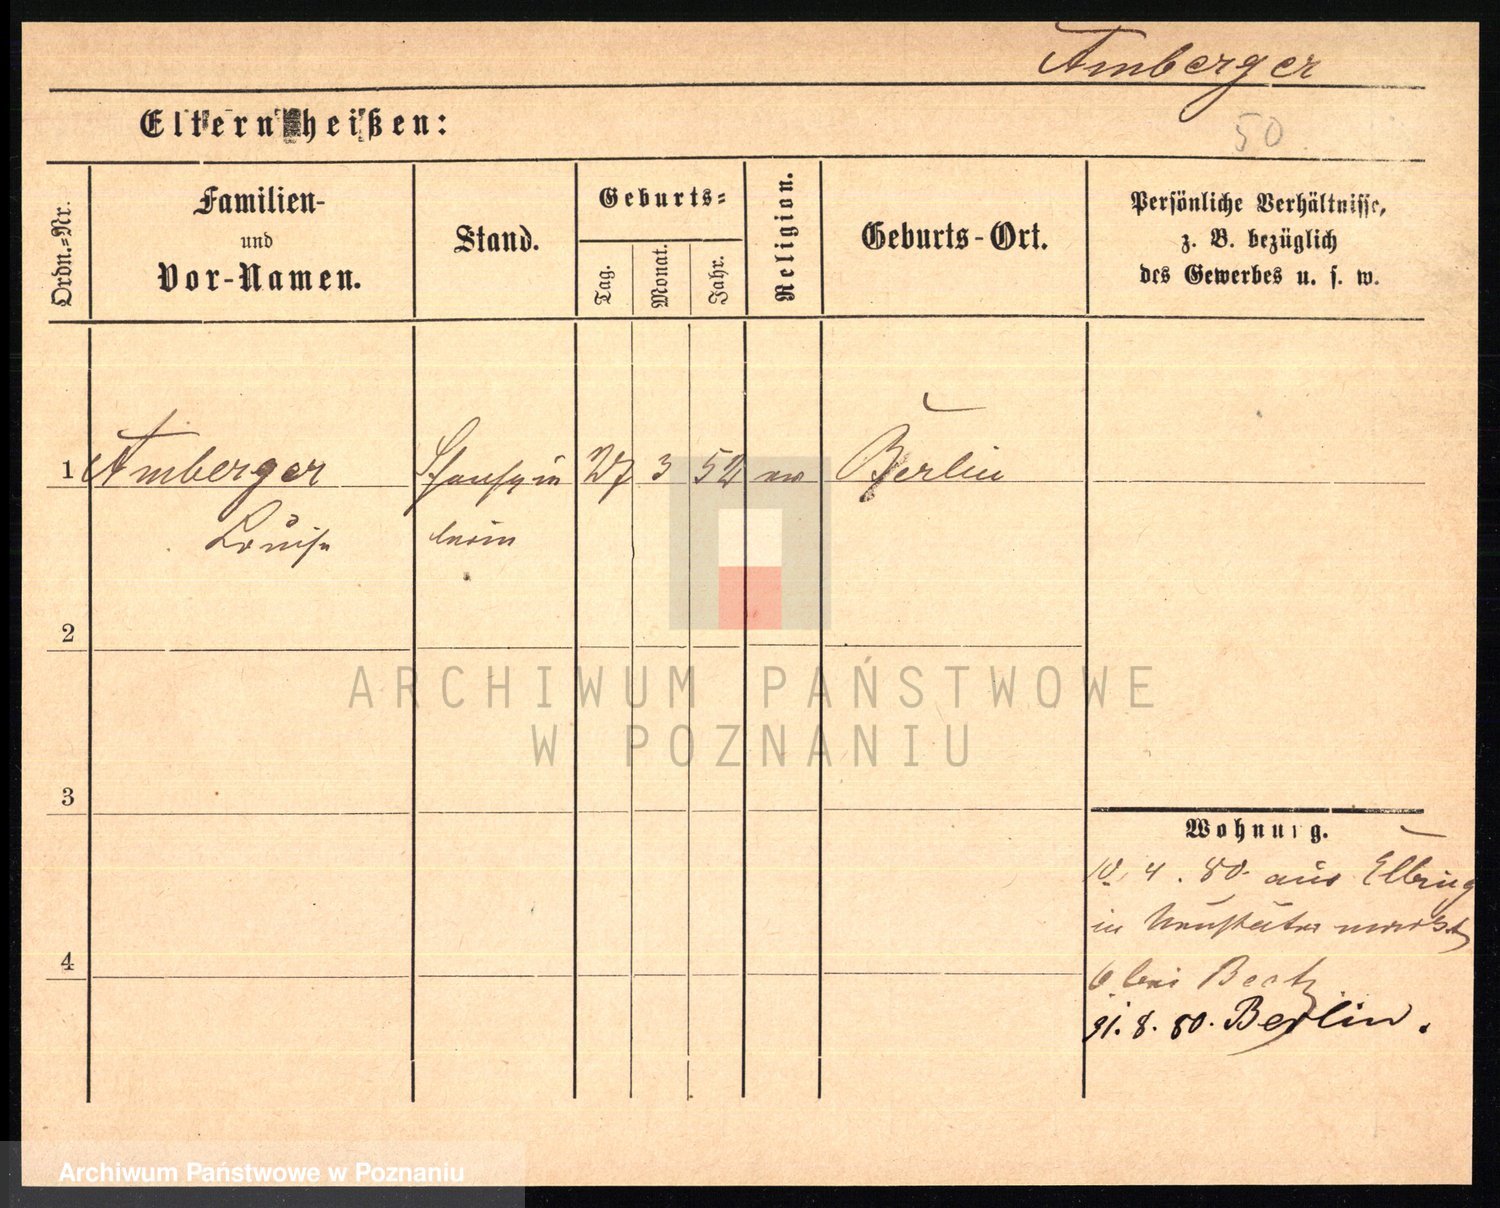 Amberger
Eltern heißen:
50
Ordn.=Nr.
Familien-
und
Vor-Namen.
Stand.
Geburts=
Tag.
Monat.
Jahr.
Religion.
Geburts-Ort.
Persönliche Verhältnisse,
z. B. bezüglich
des Gewerbes u. s. w.
1 Amberger Schauspie 27 3 52 ev Berlin
Louise lerin
2
3
4
Wohnung.
10. 4. 80. aus Elbing
in Neustädter markt
6 bei
31. 8. 80. Berlin.
ARCHIWUM PAŃSTWOWE
W POZNANIU
Archiwum Państwowe w Poznaniu